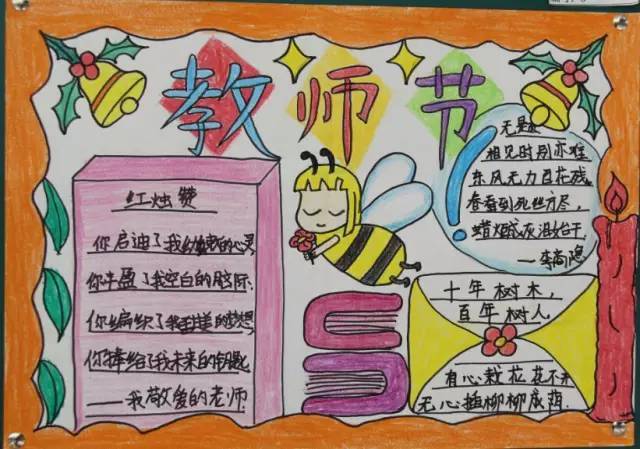 教师节
红烛赞
你启迪了我幼嫩的心灵
你丰盈了我空白的脑际
你编织了我美的梦想
你捧给了我未来的钥匙
——我敬爱的老师
无题
相见时别亦难
东风无力百花残。
春到死丝方尽,
蜡烛成灰泪始干。
——李商隐
十年树木,
百年树人
有心栽花花不开
无心插柳柳成荫.